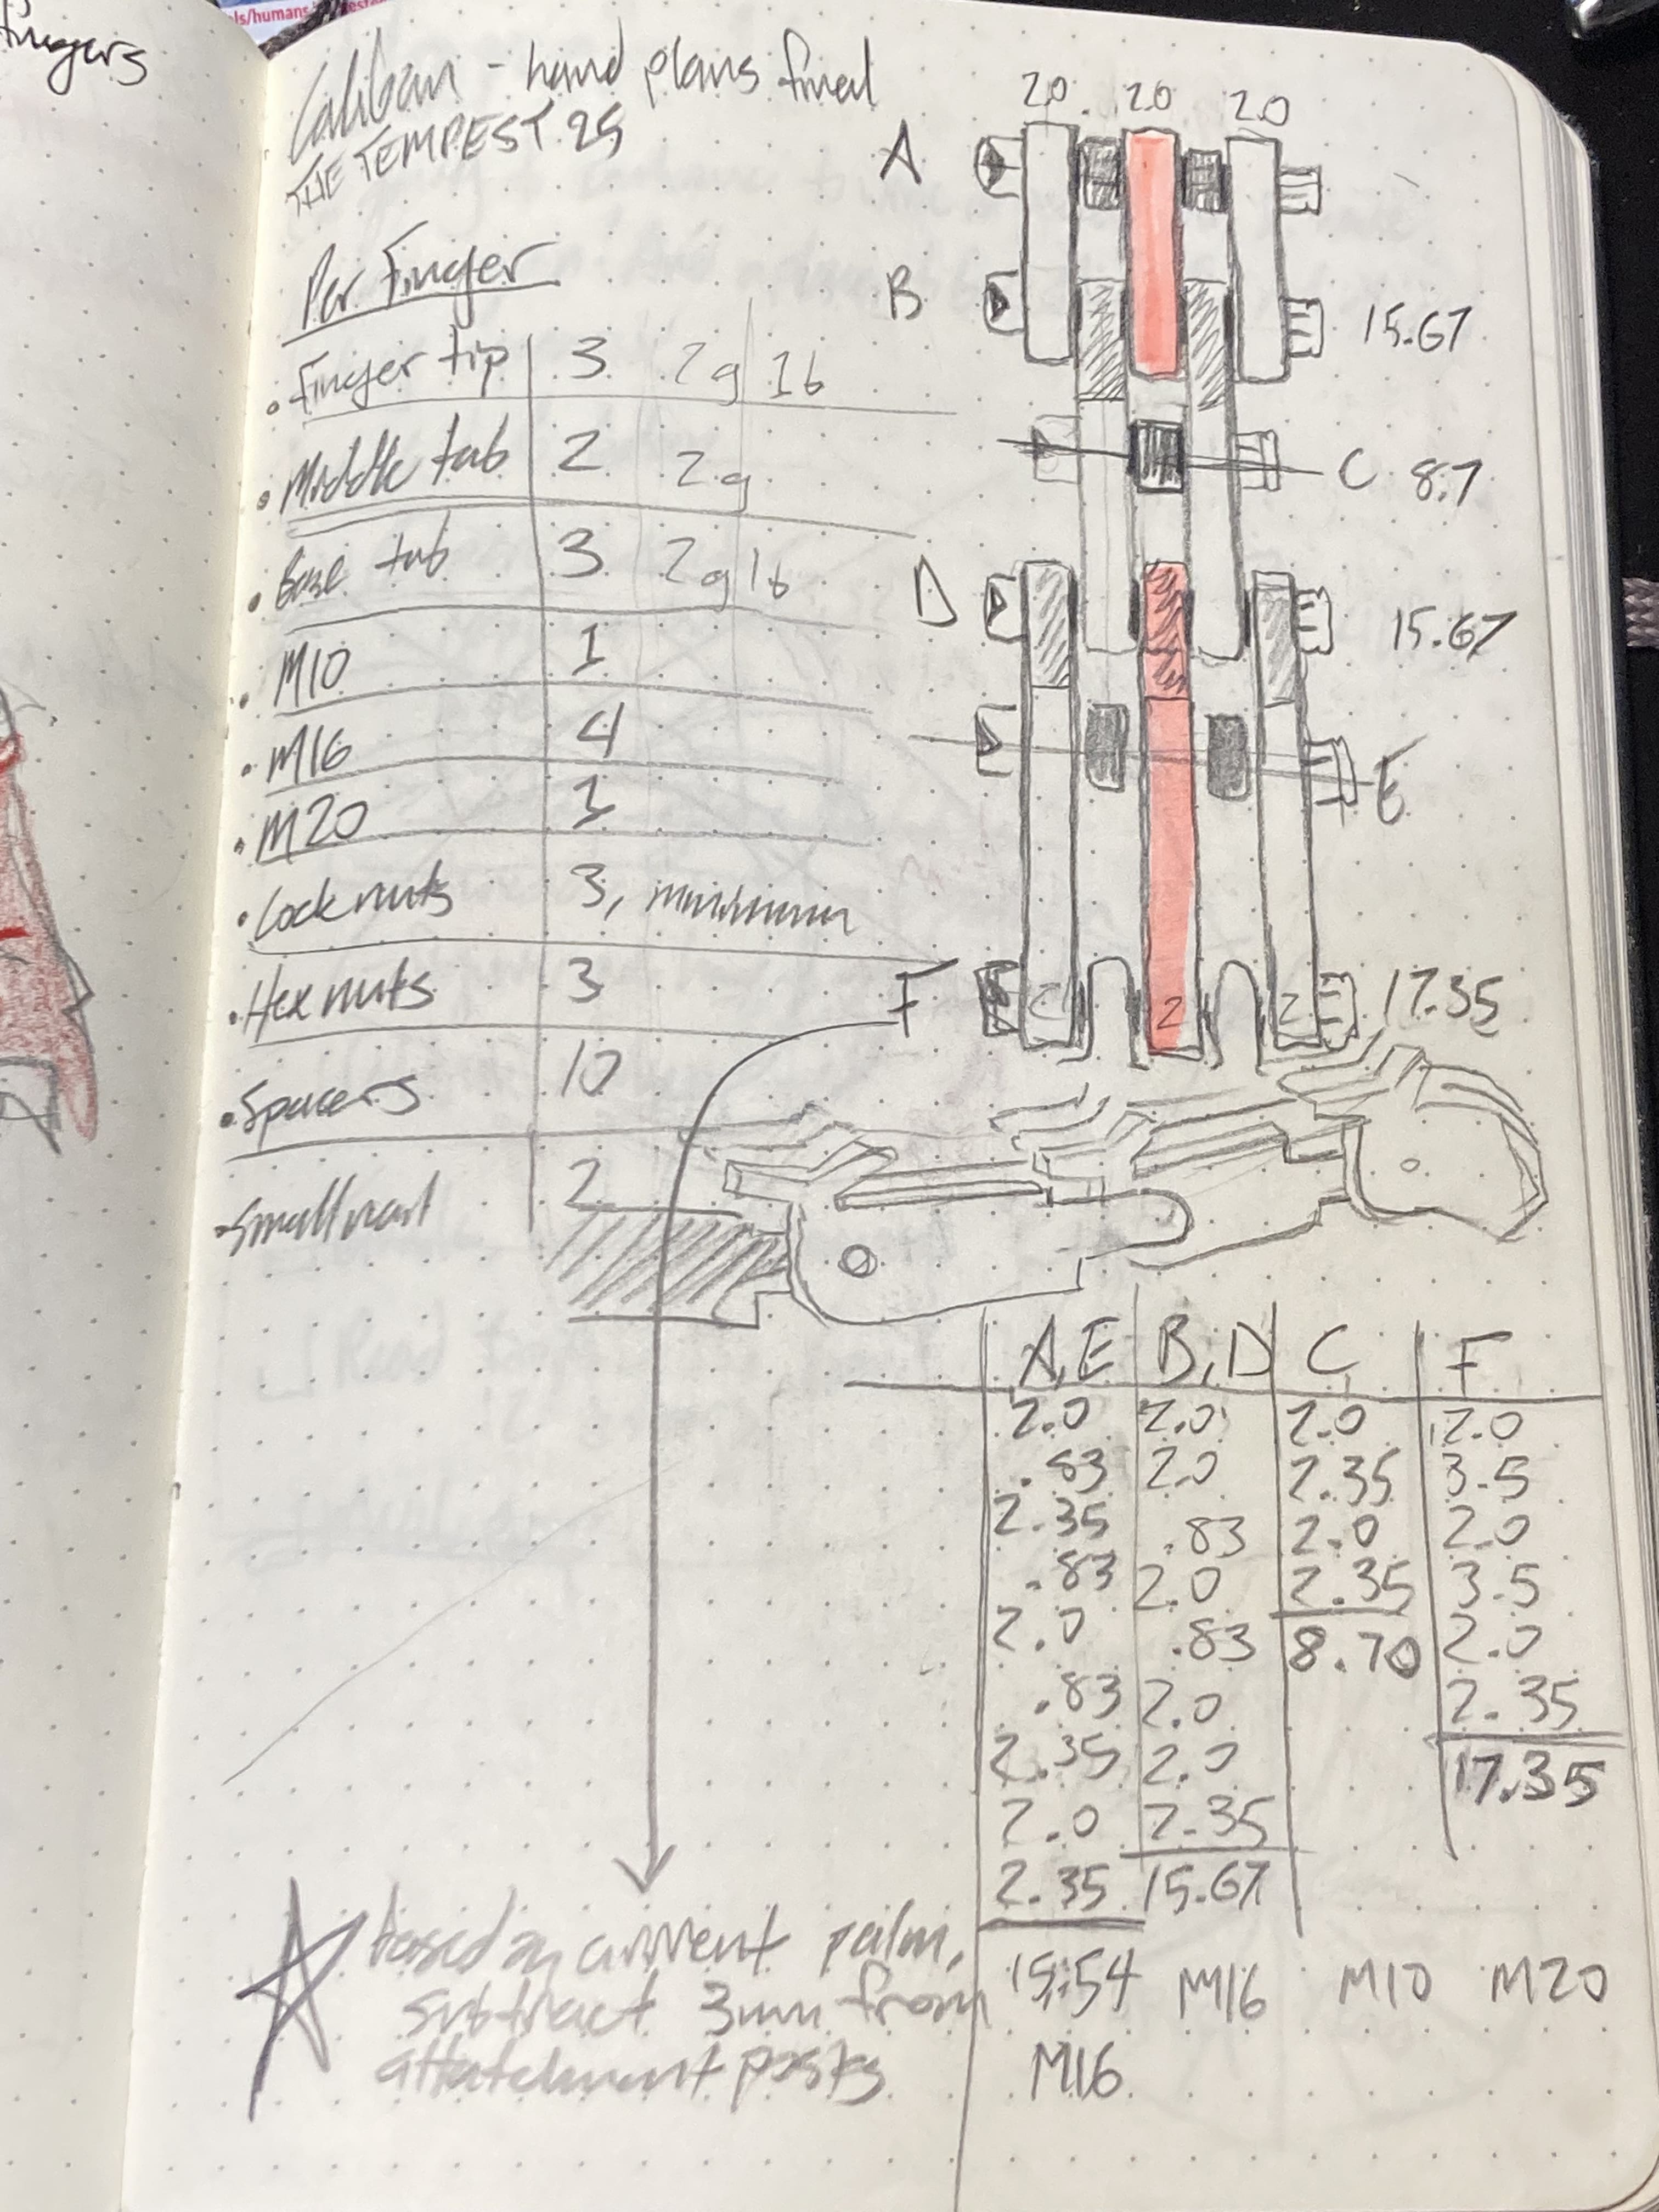 fingers
ls/humans
Caliban - hand plans final
THE TEMPEST 25
Per Finger
• Finger tip 3 2g 1b
• Middle tab 2 2g
• Base tab 3 2g 1b
• M10 1
• M16 4
• M20 1
• Lock nuts 3, minimum
• Hex nuts 3
• Spacers 10
• Small 2
20 20 20
A
B 15.67
C 8.7
D 15.67
E
F 17.35
2 2 2
A,E B,D C F
2.0 2.0 2.0 2.0
.83 2.0 2.35 3.5
2.35 .83 2.0 2.0
.83 2.0 2.35 3.5
2.0 .83 8.70 2.0
.83 2.0 2.35
2.35 2.0 17.35
2.0 2.35
2.35 15.67
15.54 M16 M10 M20
M16
based on current palm,
subtract 3mm from
attatchment posts